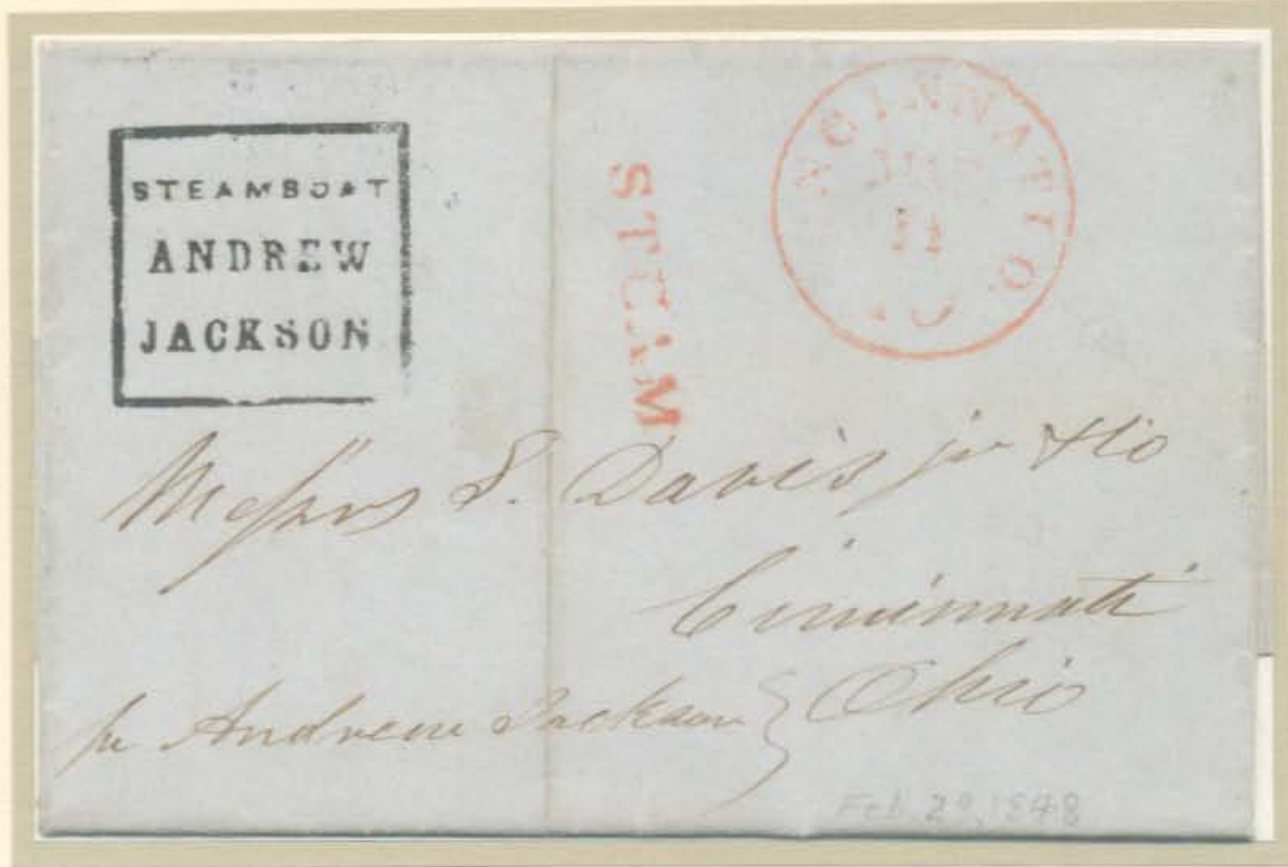 STEAMBOAT
ANDREW
JACKSON
STEAM
NCINNATI O.
10
Messrs S. Davis jr & Co
Cincinnati
Ohio
pr Andrew Jackson
Feb. 29, 1848